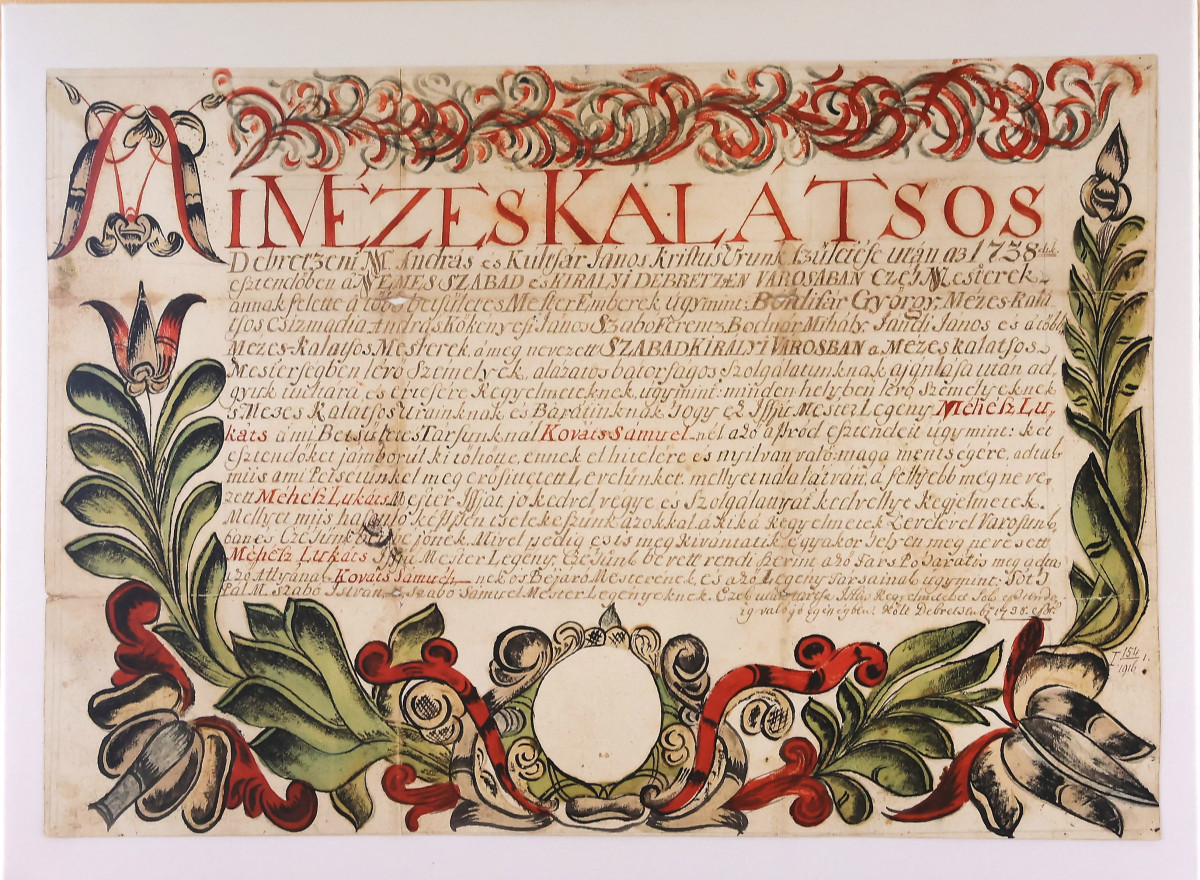 MI MÉZES KALÁTSOS
Debretzeni M. András és Kultsár János kristus Urunk születése után az 1738dik
esztendőben a NEMES SZABAD és KIRÁLYI DEBRETZEN VÁROSÁBAN Czéh Mesterek
annak felette a többi betsületes Mester Emberek ugymint: György, Mézes-Kalá
tsos Csizmadia András Kökényesi János Szabo Ferentz Bodnár Mihály, Jandi János és a többi
Mézes-Kalatsos Mesterek, a meg nevezett SZABAD KIRÁLYI VÁROSBAN a Mézes kalatsos
Mesterségben lévő Személyek, alázatos bátorságos szolgálatunknak ajánlása után ad
gyuk tudtára, és értésére Kegyelmeteknek, ugymint: minden helyben lévő személyeknek
s Mézes Kalatsos Urainknak és Barátinknak hogy ez Iffju Mester Legény Mehelz Lu-
káts a mi Betsületes Társunknál Kováts Sámuel-nél a zo aprod esztendeit ugymint: két
esztendőket jámborúl ki töltötte, ennek el hitelére és nyilván való maga mentségére, adtuk
miis a mi Petsétünkel meg erősittetett Levelünket. mellyet nála látván, a fellyebb meg neve-
zett Mehelz Lukáts Mester Iffját jo kedvel végye, és Szolgálattyát kedvellye Kegyelmetek.
Mellyet miis kéßssen tselekeszünk azokkal a kik a Kegyelmetek Levelével Városunk
ban és Czéhünkben jőnek. Mivel pedig ez is meg kívántatik egyakor helyen meg nevesett
Mehelz Lukáts Iffju Mester Legény, Czéhünk bé vett rendi szerint a zo Társ Po'haratis meg adta
a zo Attyának Kováts Sámuel-nek os Bejáró Mesterének, és a zo Legény Társainak ugymint: Tót I
Pál M. Szabó István, Szabó Sámuel Mester Legényeknek. Ezek után Kegyelmeteket
ig való jo egésségben. Költ Debretzenbe 1738. eszt.
I 154/1916 1.